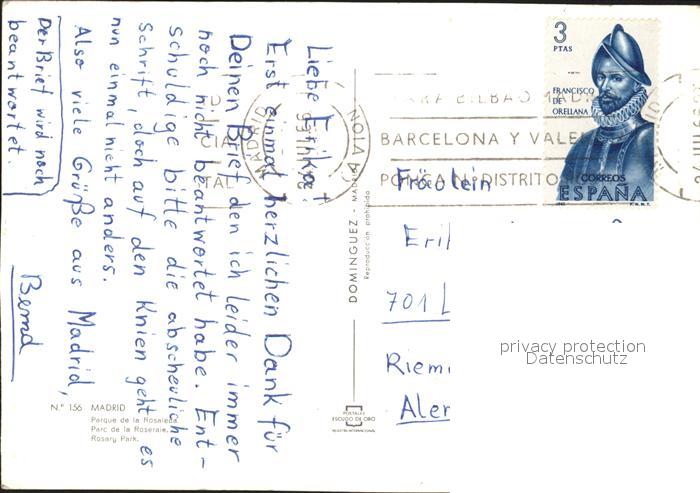 Liebe Erika!
Erst einmal herzlichen Dank für
Deinen Brief den ich leider immer
noch nicht beantwortet habe. Ent-
schuldige bitte die abscheuliche
Schrift, doch auf den Knien geht es
nun einmal nicht anders.
Also viele Grüße aus Madrid,
Bernd
Der Brief wird noch
beantwortet.
Nº 156 MADRID
Parque de la Rosaleda.
Parc de la Roseraie.
Rosary Park.
DOMINGUEZ - MADRID
Reproducción prohibida
POSTALES
ESCUDO DE ORO
MADRID
AVION
BILBAO MADRID
BARCELONA Y VALE
PONGA Nº DISTRITO
3
PTAS
FRANCISCO
DE
ORELLANA
CORREOS
ESPAÑA
F.N.M.T.
Fräulein
Eri
701
Riem
Aler
privacy protection
Datenschutz